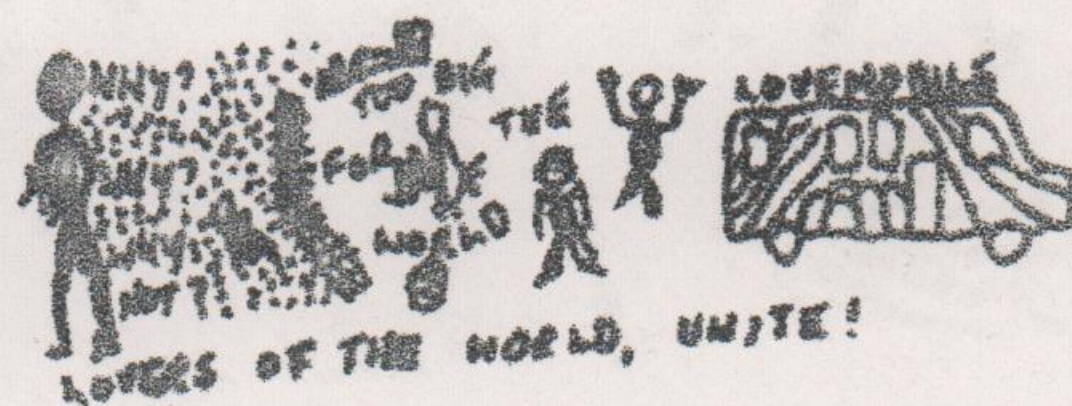 WHY?
WHY?
WHY
NOT?
TOO BIG
FOR
WORLD
THE
LOVEMOBILE
LOVERS OF THE WORLD, UNITE!